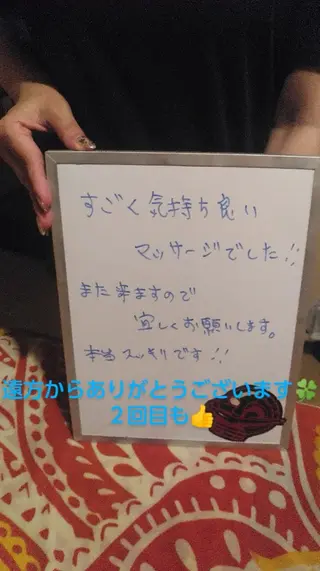 すごく気持ち良い
マッサージでした!!
また来ますので
宜しくお願いします。
本当スッキリです!!
遠方からありがとうございます🍀
２回目も👍